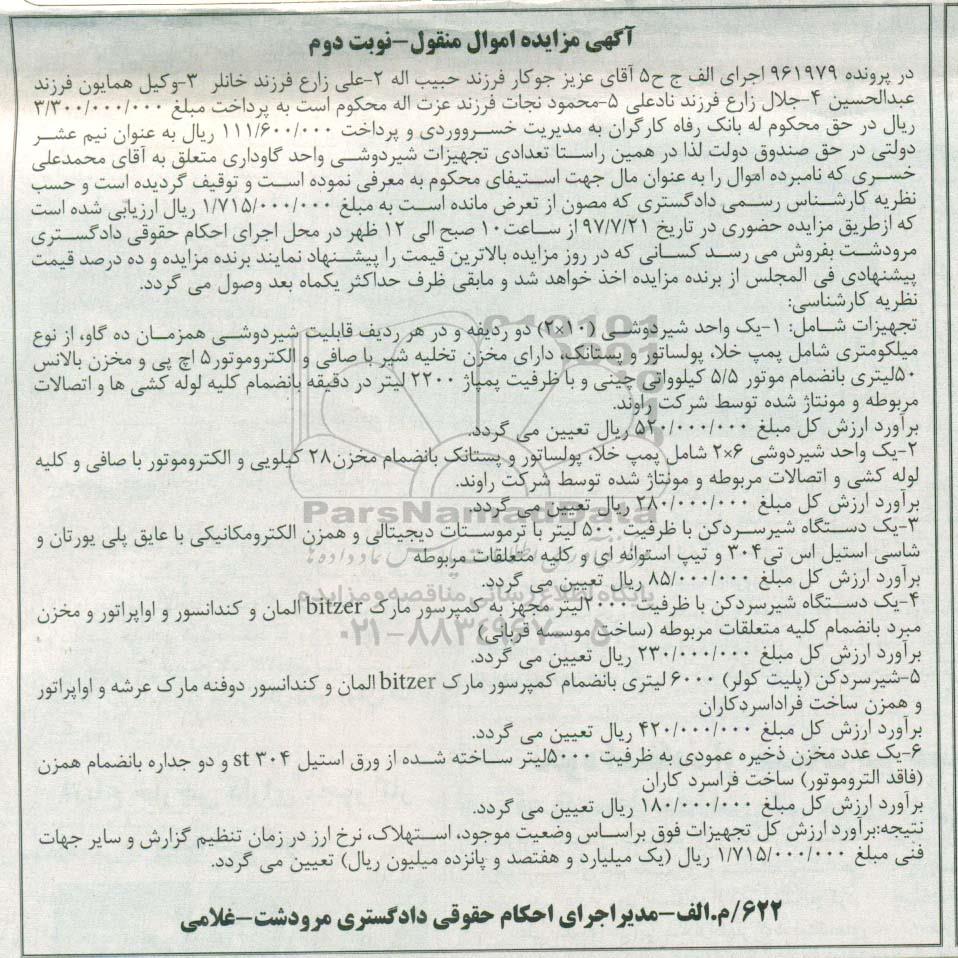 آگهی مزایده اموال منقول-نوبت دوم
در پرونده ۹۶۱۹۷۹ اجرای الف ج ح۵ آقای عزیز جوکار فرزند حبیب اله ۲-علی زارع فرزند خانلر ۳-وکیل همایون فرزند
عبدالحسین ۴-جلال زارع فرزند نادعلی ۵-محمود نجات فرزند عزت اله محکوم است به پرداخت مبلغ ۳/۳۰۰/۰۰۰/۰۰۰
ریال در حق محکوم له بانک رفاه کارگران به مدیریت خسرووردی و پرداخت ۱۱۱/۶۰۰/۰۰۰ ریال به عنوان نیم عشر
دولتی در حق صندوق دولت لذا در همین راستا تعدادی تجهیزات شیردوشی واحد گاوداری متعلق به آقای محمدعلی
خسری که نامبرده اموال را به عنوان مال جهت استیفای محکوم به معرفی نموده است و توقیف گردیده است و حسب
نظریه کارشناس رسمی دادگستری که مصون از تعرض مانده است به مبلغ ۱/۷۱۵/۰۰۰/۰۰۰ ریال ارزیابی شده است
که ازطریق مزایده حضوری در تاریخ ۹۷/۷/۲۱ از ساعت۱۰ صبح الی ۱۲ ظهر در محل اجرای احکام حقوقی دادگستری
مرودشت بفروش می رسد کسانی که در روز مزایده بالاترین قیمت را پیشنهاد نمایند برنده مزایده و ده درصد قیمت
پیشنهادی فی المجلس از برنده مزایده اخذ خواهد شد و مابقی ظرف حداکثر یکماه بعد وصول می گردد.
نظریه کارشناسی:
تجهیزات شامل: ۱-یک واحد شیردوشی (۱۰×۲) دو ردیفه و در هر ردیف قابلیت شیردوشی همزمان ده گاو، از نوع
میلکومتری شامل پمپ خلا، پولساتور و پستانک، دارای مخزن تخلیه شیر با صافی و الکتروموتور۵ اچ پی و مخزن بالانس
۵۰لیتری بانضمام موتور ۵/۵ کیلوواتی چینی و با ظرفیت پمپاژ ۲۲۰۰ لیتر در دقیقه بانضمام کلیه لوله کشی ها و اتصالات
مربوطه و مونتاژ شده توسط شرکت راوند.
برآورد ارزش کل مبلغ ۵۲۰/۰۰۰/۰۰۰ ریال تعیین می گردد.
۲-یک واحد شیردوشی ۶×۲ شامل پمپ خلا، پولساتور و پستانک بانضمام مخزن۲۸ کیلویی و الکتروموتور با صافی و کلیه
لوله کشی و اتصالات مربوطه و مونتاژ شده توسط شرکت راوند.
برآورد ارزش کل مبلغ ۲۸۰/۰۰۰/۰۰۰ ریال تعیین می گردد.
۳-یک دستگاه شیرسردکن با ظرفیت ۵۰۰ لیتر با ترموستات دیجیتالی و همزن الکترومکانیکی با عایق پلی یورتان و
شاسی استیل اس تی۳۰۴ و تیپ استوانه ای و کلیه متعلقات مربوطه
برآورد ارزش کل مبلغ ۸۵/۰۰۰/۰۰۰ ریال تعیین می گردد.
۴-یک دستگاه شیرسردکن با ظرفیت ۲۰۰۰لیتر مجهز به کمپرسور مارک bitzer المان و کندانسور و اواپراتور و مخزن
مبرد بانضمام کلیه متعلقات مربوطه (ساخت موسسه قربانی)
برآورد ارزش کل مبلغ ۲۳۰/۰۰۰/۰۰۰ ریال تعیین می گردد.
۵-شیرسردکن (پلیت کولر) ۶۰۰۰ لیتری بانضمام کمپرسور مارک bitzer المان و کندانسور دوفنه مارک عرشه و اواپراتور
و همزن ساخت فراداسردکاران
برآورد ارزش کل مبلغ ۴۲۰/۰۰۰/۰۰۰ ریال تعیین می گردد.
۶-یک عدد مخزن ذخیره عمودی به ظرفیت ۵۰۰۰لیتر ساخته شده از ورق استیل st ۳۰۴ و دو جداره بانضمام همزن
(فاقد التروموتور) ساخت فراسرد کاران
برآورد ارزش کل مبلغ ۱۸۰/۰۰۰/۰۰۰ ریال تعیین می گردد.
نتیجه:برآورد ارزش کل تجهیزات فوق براساس وضعیت موجود، استهلاک، نرخ ارز در زمان تنظیم گزارش و سایر جهات
فنی مبلغ ۱/۷۱۵/۰۰۰/۰۰۰ ریال (یک میلیارد و هفتصد و پانزده میلیون ریال) تعیین می گردد.
۶۲۲/م.الف-مدیراجرای احکام حقوقی دادگستری مرودشت-غلامی
ParsNamadData
پایگاه اطلاع رسانی مناقصه و مزایده